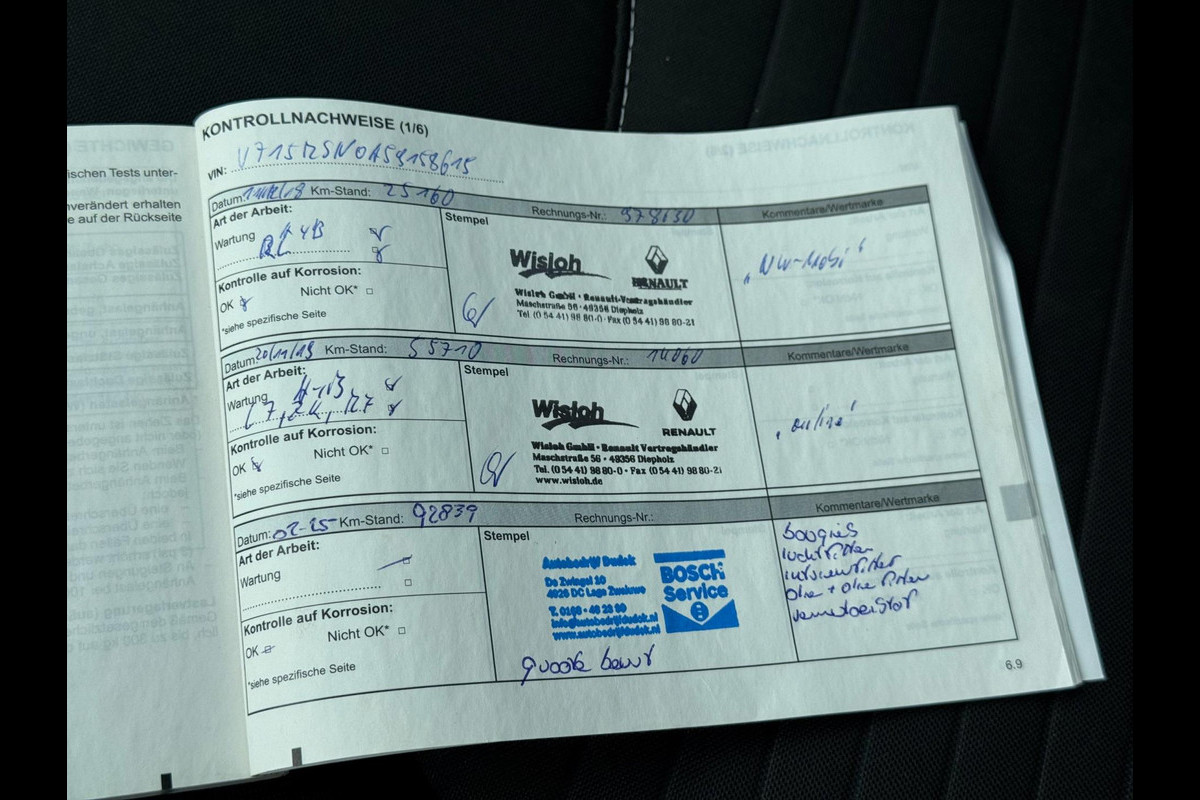 GEWICHTE
ischen Tests unter-
verändert erhalten
e auf der Rückseite
KONTROLLNACHWEISE (1/6)
VIN:
Datum: Km-Stand: 25160 Rechnungs-Nr.: 978130 Kommentare/Wertmarke
Art der Arbeit:
Stempel
Wartung
Kontrolle auf Korrosion:
OK Nicht OK*
*siehe spezifische Seite
Wisloh RENAULT
Wisloh GmbH · Renault-Vertragshändler
Maschstraße 56 · 49356 Diepholz
Tel (0 54 41) 98 80-0 · Fax (0 54 41) 98 80-21
Datum: 20/11/19 Km-Stand: 55710 Rechnungs-Nr.: 14060 Kommentare/Wertmarke
Art der Arbeit:
Stempel
Wartung
Kontrolle auf Korrosion:
OK Nicht OK*
*siehe spezifische Seite
Wisloh RENAULT
Wisloh GmbH · Renault Vertragshändler
Maschstraße 56 · 49356 Diepholz
Tel. (0 54 41) 98 80-0 · Fax (0 54 41) 98 80-21
www.wisloh.de
"online"
Datum: 02-25 Km-Stand: 92839 Rechnungs-Nr.: Kommentare/Wertmarke
Art der Arbeit:
Stempel
Wartung
Kontrolle auf Korrosion:
OK Nicht OK*
*siehe spezifische Seite
Autobedrijf Dudok
De Zwingel 10
4926 DC Lage Zwaluwe
info@autobedrijfdudok.nl
www.autobedrijfdudok.nl
BOSCH
Service
bougies
luchtfilter
interieurfilter
olie + olie filter
6.9